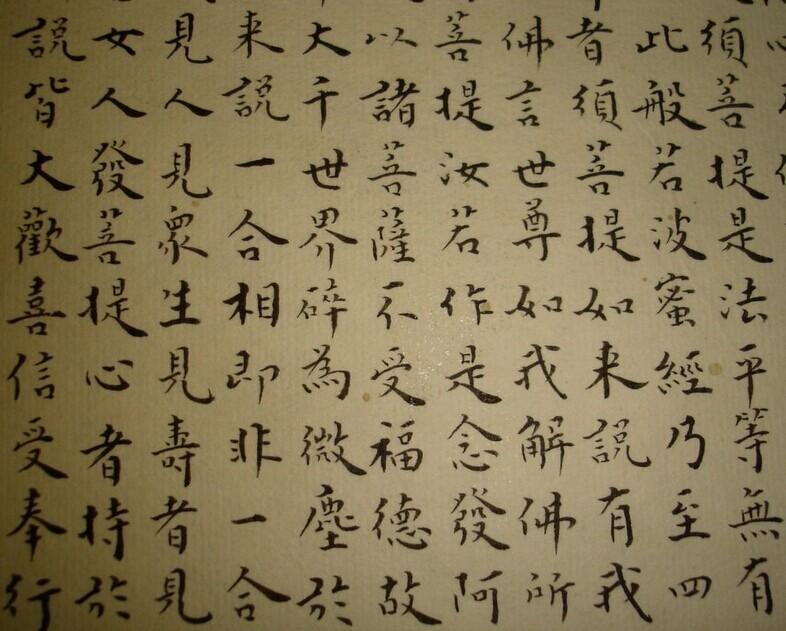 須菩提是法平等無有
此般若波蜜經乃至四
者須菩提如来說有我
佛言世尊如我解佛所
菩提汝若作是念發阿
以諸菩薩不受福德故
大千世界碎為微塵於
来說一合相即非一合
見人見眾生見壽者見
女人發菩提心者持於
說皆大歡喜信受奉行